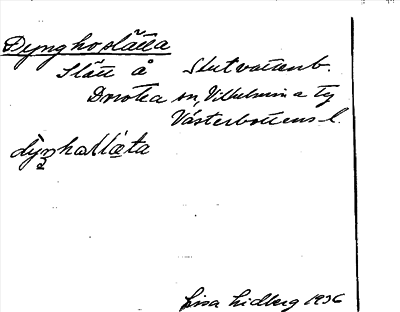 Dynghoslåtta
Slått å Slutvattenb.
Dorotea sn, Vilhelmina tg
Västerbottens l.
Lisa Lidberg 1936